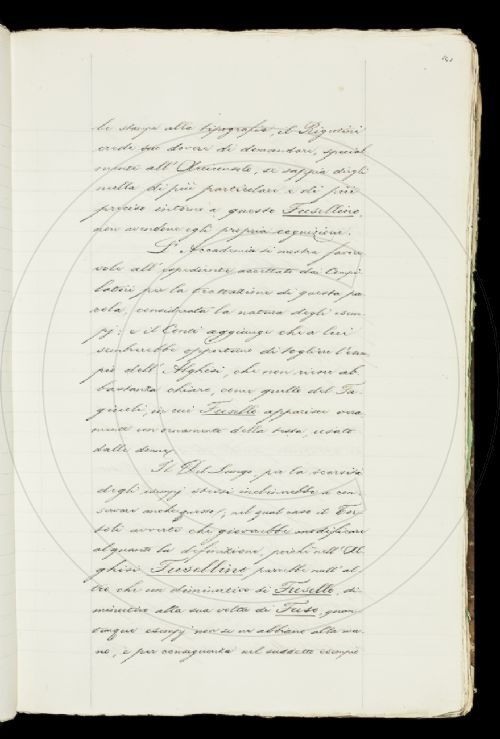 le stampe alla tipografia, il Rigutini
crede suo dovere di domandare, special
mente all' Arciconsolo, se sappia dirgli
nulla di più particolare e di più
preciso intorno a questo Fusellino,
non avendone egli propria cognizione.
L' Accademia si mostra favore
vole all' espediente accettato dai Compi
latori per la trattazione di questa pa
rola, considerata la natura degli esem
pj: e il Conti aggiunge che a lui
sembrerebbe opportuno di togliere l'esem
pio dell' Alghisi, che non riesce ab
bastanza chiaro, come quello del Ta
glietti, in cui Fusello apparisce vera
mente un ornamento della testa, usato
dalle donne.
Il Del Lungo per la scarsità
degli esempj stessi inclinerebbe a con
servare anche questo; nel qual caso il
avverte che gioverebbe modificare
alquanto la definizione, poichè nell' Al
ghisi Fusellino parrebbe null' al
tro che un diminutivo di Fusello, di
minutivo alla sua volta di Fuso, quan
tunque esempj non se ne abbiano alla ma
no, e per conseguenza nel suddetto esempio